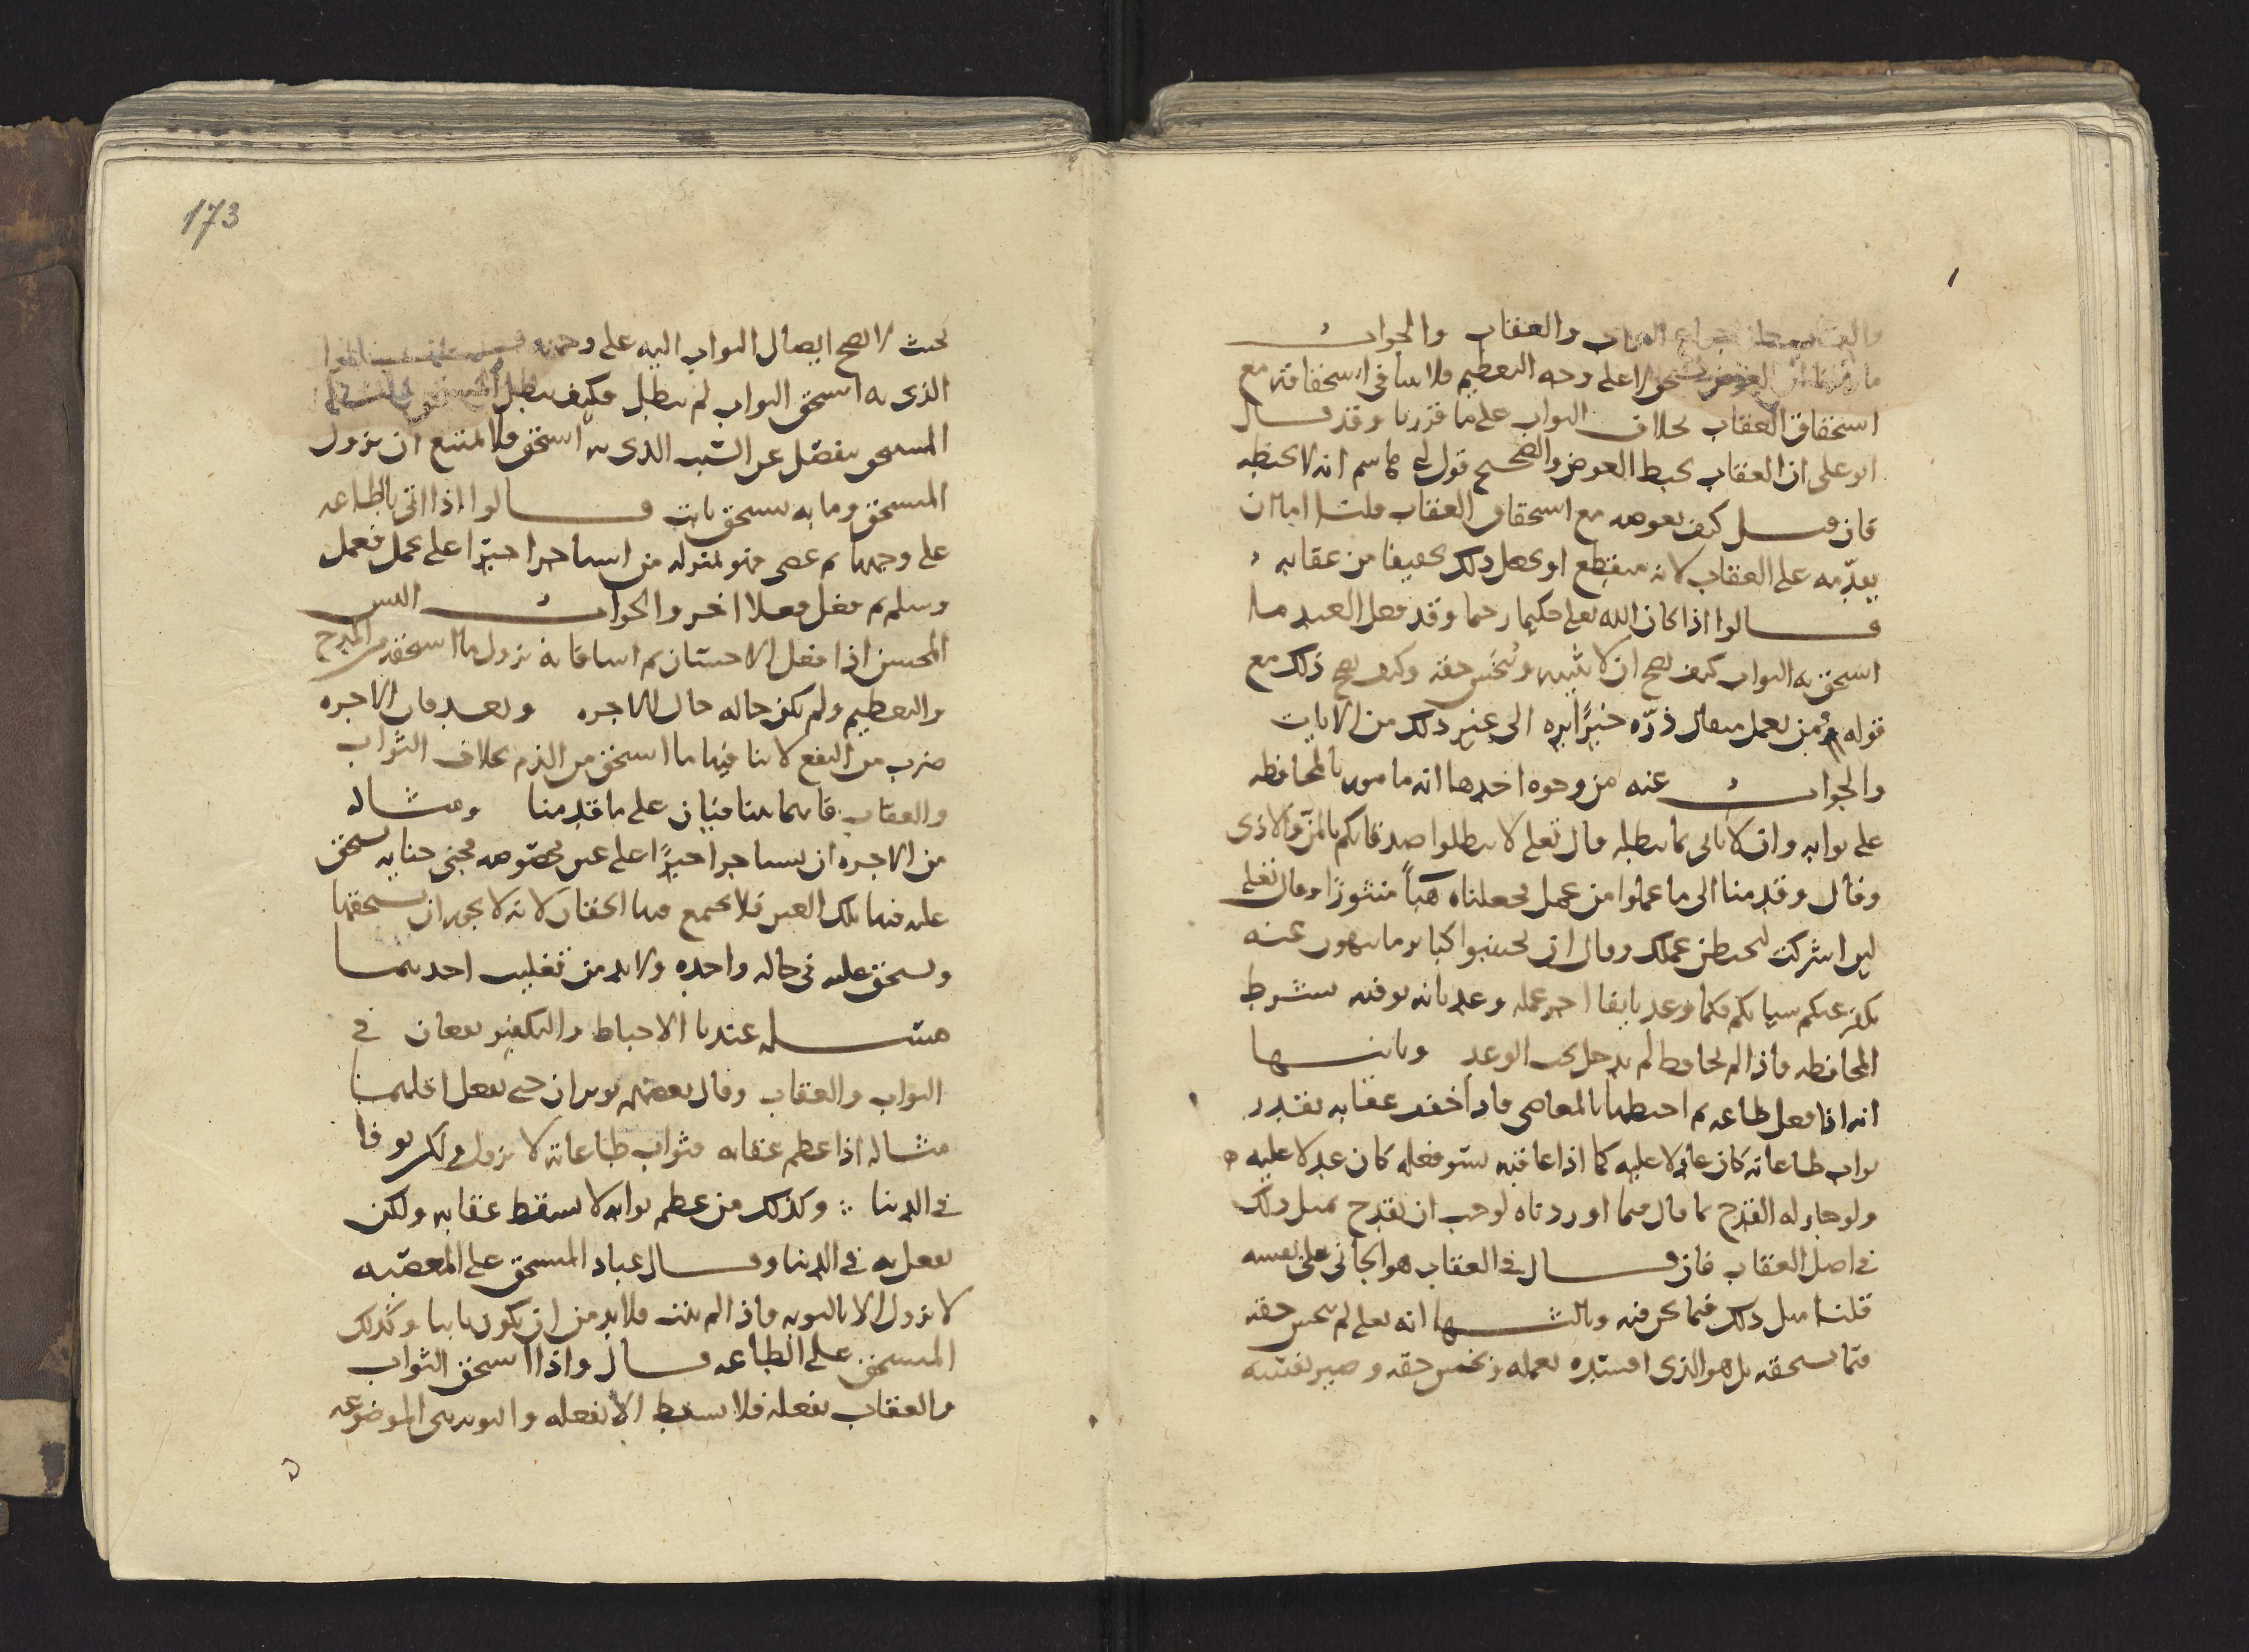 والعقاب والجواب
لا على وجه التعظيم فلا ينافي استحقاقه مع
استحقاق العقاب بخلاف الثواب على ما قررنا وقد قال
ابو على ان العقاب يحبط العوض والصحيح قول ابي هاشم انه لا يحبطه
فان قيل كيف يعوضه مع استحقاق العقاب قلنا اما ان
يقدمه على العقاب لانه منقطع او يجعل ذلك تخفيفا من عقابه
قالوا اذا كان الله تعلى حكيما رحيما وقد فعل العبد ما
استحق به الثواب كيف يصح ان لا يثيبه ويبخس حقه وكيف يصح ذلك مع
قوله فمن يعمل مثقال ذرّه خيرًا يره الى غير ذلك من الايات
والجواب عنه من وجوه احدها انه مامور بالمحافظه
على ثوابه وان لا ياتى بما يبطله قال تعلى لا تبطلوا صدقاتكم بالمنّ والاذى
وقال وقدمنا الى ما عملوا من عمل فجعلناه هباً منثورًا وقال تعلى
لين اشركت ليحبطن عملك وقال ان تجتنبوا كباير ما تنهون عنه
نكفر عنكم سياتكم فكما وعد بايفا اجر عمله وعد بانه يوفيه بشرط
المحافظه فاذا لم يحافظ لم يدخل تحت الوعد وثانيها
انه اذا فعل طاعه ثم احبطها بالمعاصى فاذا خفف عقابه بقدر
ثواب طاعاته كان عادلا عليه كما اذا عاقبه بسو فعله كان عدلا عليه
ولو جاز له القدح بما قال فيما اوردناه لوجب ان يقدح بمثل ذلك
في اصل العقاب فان قال في العقاب هو الجاني على نفسه
قلنا مثل ذلك فيما نحن فيه وثالثها انه تعلى لم يبخس حقه
مما يستحقه بل هو الذى افسده بعمله وبخس حقه وصير نفسه
173
بحيث لا يصح ايصال الثواب اليه على وجهه
الذى به استحق الثواب لم يبطل فكيف يبطل
المستحق منفصل عن السبب الذى به استحق فلا يمتنع ان يزول
المستحق وما به يستحق ثابت قالوا اذا اتى بالطاعه
على وجهها ثم عصى فهو بمنزله من استاجر اجيرًا على عمل فعمل
وسلم ثم فعل فعلا اخر والجواب اليس
المحسن اذا فعل الاحسان ثم اسا فانه يزول ما استحقه من المدح
والتعظيم ولم يكن حاله حال الاجره وبعد فان الاجره
ضرب من النفع لا ينافيها ما استحق من الذم بخلاف الثواب
والعقاب فانهما يتنافيان على ما قدمنا ومثاله
من الاجره ان يستاجر اجيرًا على عين مخصوصه فجنى جنايه يستحق
عليه فيها تلك العين فلا يجتمع فيها الحقان لانه لا يجوز ان يستحقها
ويستحق عليه في حاله واحده ولا بد من تغليب احدهما
مسله عندنا الاحباط والتكفير يقعان في
الثواب والعقاب وقال بعضهم يوثران حتى يفعل اقلهما
مثاله اذا عظم عقابه فثواب طاعاته لا يزول ولكن يوفا
في الدنيا وكذلك من عظم ثوابه لا يسقط عقابه ولكن
يفعل به في الدنيا وقال عباد المستحق على المعصيه
لا يزول الا بالتوبه فاذا لم يتب فلا بد من ان يكون ثابتا وكذلك
المستحق على الطاعه قال واذا استحق الثواب
والعقاب بفعله فلا يسقط الا بفعله والتوبه هي الموضوعه